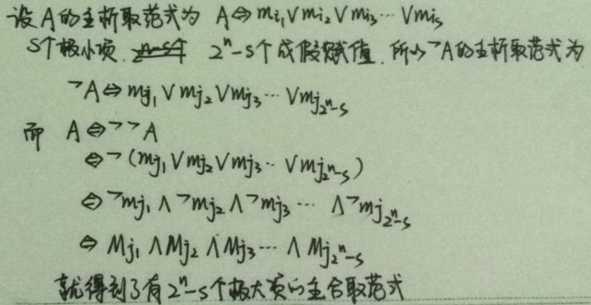 设A的主析取范式为 A⇔mi₁∨mi₂∨mi₃…∨miₛ
S个极小项, 2ⁿ-s个成假赋值, 所以¬A的主析取范式为
¬A⇔mj₁∨mj₂∨mj₃…∨mj₂ⁿ₋ₛ
而 A⇔¬¬A
⇔¬(mj₁∨mj₂∨mj₃…∨mj₂ⁿ₋ₛ)
⇔¬mj₁∧¬mj₂∧¬mj₃…∧¬mj₂ⁿ₋ₛ
⇔Mj₁∧Mj₂∧Mj₃…∧Mj₂ⁿ₋ₛ
就得到了有2ⁿ-s个极大项的主合取范式